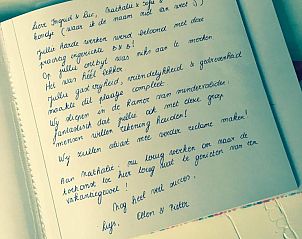 Lieve Ingrid & Luc, Nathalie & Sofie &
hondje (waar ik de naam niet van weet :)
Jullie harde werken werd beloond met deze
prachtig ingerichte b & b!
Op jullie ontbijt was niks aan te merken
Het was héél lekker
Jullie gastvrijheid, vriendelijkheid & gedrevenheid
maakte dit plaatje compleet
Wij sliepen in de kamer van mindervalide:
fantastisch dat jullie ook met deze groep
mensen willen rekening houden!
Wij zullen alvast mee verder reclame maken!
Aan Nathalie: nu terug werken om naar de
toekomst toe hier terug rust te genieten van een
vakantiegevoel!
Nog heel veel succes,
Ellen & Pieter